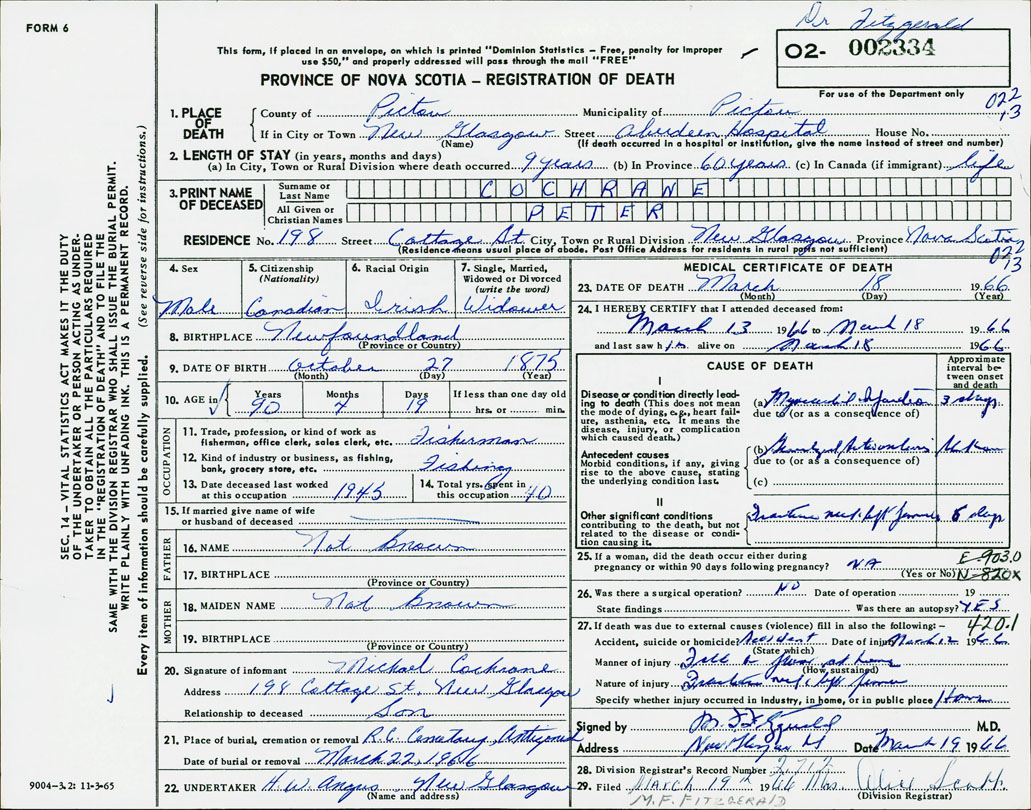 Dr Fitzgerald
FORM 6
This form, if placed in an envelope, on which is printed "Dominion Statistics – Free, penalty for improper
use $50," and properly addressed will pass through the mail "FREE"
O2- 002334
PROVINCE OF NOVA SCOTIA – REGISTRATION OF DEATH
For use of the Department only
022
13
1. PLACE OF DEATH
County of Pictou Municipality of Pictou
If in City or Town New Glasgow Street Aberdeen Hospital House No.
(Name) (If death occurred in a hospital or institution, give the name instead of street and number)
2. LENGTH OF STAY (in years, months and days)
(a) In City, Town or Rural Division where death occurred 9 years (b) In Province 60 years (c) In Canada (if immigrant) life
3. PRINT NAME OF DECEASED
Surname or Last Name COCHRANE
All Given or Christian Names PETER
RESIDENCE No. 198 Street Cottage St City, Town or Rural Division New Glasgow Province Nova Scotia
(Residence means usual place of abode. Post Office Address for residents in rural parts not sufficient)
022
13
4. Sex
Male
5. Citizenship
(Nationality)
Canadian
6. Racial Origin
Irish
7. Single, Married,
Widowed or Divorced
(write the word)
Widower
8. BIRTHPLACE Newfoundland
(Province or Country)
9. DATE OF BIRTH October 27 1875
(Month) (Day) (Year)
10. AGE in
Years Months Days If less than one day old
90 4 19 hrs. or min.
OCCUPATION
11. Trade, profession, or kind of work as
fisherman, office clerk, sales clerk, etc. Fisherman
12. Kind of industry or business, as fishing,
bank, grocery store, etc. Fishing
13. Date deceased last worked
at this occupation 1945
14. Total yrs. spent in
this occupation 40
15. If married give name of wife
or husband of deceased
FATHER
16. NAME Not Known
17. BIRTHPLACE
(Province or Country)
MOTHER
18. MAIDEN NAME Not Known
19. BIRTHPLACE
(Province or Country)
20. Signature of informant Michael Cochrane
Address 198 Cottage St New Glasgow
Relationship to deceased Son
21. Place of burial, cremation or removal R.C. Cemetary, Antigonish
Date of burial or removal March 22, 1966
22. UNDERTAKER H. W. Angus New Glasgow
(Name and address)
MEDICAL CERTIFICATE OF DEATH
23. DATE OF DEATH March 18 1966
(Month) (Day) (Year)
24. I HEREBY CERTIFY that I attended deceased from:
March 13 1966 to March 18 1966
and last saw him alive on March 18 1966
CAUSE OF DEATH
Approximate
interval be-
tween onset
and death
I
Disease or condition directly lead-
ing to death (This does not mean
the mode of dying, e.g., heart fail-
ure, asthenia, etc. It means the
disease, injury, or complication
which caused death.)
(a) Myocardial Infarction 3 days
due to (or as a consequence of)
Antecedent causes
Morbid conditions, if any, giving
rise to the above cause, stating
the underlying condition last.
(b) Generalized Arteriosclerosis Unknown
due to (or as a consequence of)
(c)
II
Other significant conditions
contributing to the death, but not
related to the disease or condi-
tion causing it.
Fracture neck left femur 5 days
25. If a woman, did the death occur either during
pregnancy or within 90 days following pregnancy? NA
(Yes or No)
E-903.0
N-820X
26. Was there a surgical operation? NO Date of operation 19
State findings Was there an autopsy? YES
27. If death was due to external causes (violence) fill in also the following:– 420.1
Accident, suicide or homicide? Accident Date of injury March 12 1966
(State which)
Manner of injury Fall on floor at home
(How sustained)
Nature of injury Fracture neck left femur
Specify whether injury occurred in industry, in home, or in public place Home
Signed by M. F. Fitzgerald M.D.
Address New Glasgow NS Date March 19 1966
28. Division Registrar's Record Number
29. Filed MARCH 19th 1966 Mrs. Scott
(Division Registrar)
M.F. FITZGERALD
SEC. 14 – VITAL STATISTICS ACT MAKES IT THE DUTY
OF THE UNDERTAKER OR PERSON ACTING AS UNDER-
TAKER TO OBTAIN ALL THE PARTICULARS REQUIRED
IN THE "REGISTRATION OF DEATH" AND TO FILE THE
SAME WITH THE DIVISION REGISTRAR WHO SHALL ISSUE THE BURIAL PERMIT.
WRITE PLAINLY WITH UNFADING INK. THIS IS A PERMANENT RECORD.
Every item of information should be carefully supplied. (See reverse side for instructions.)
9004–3.2: 11-3-65